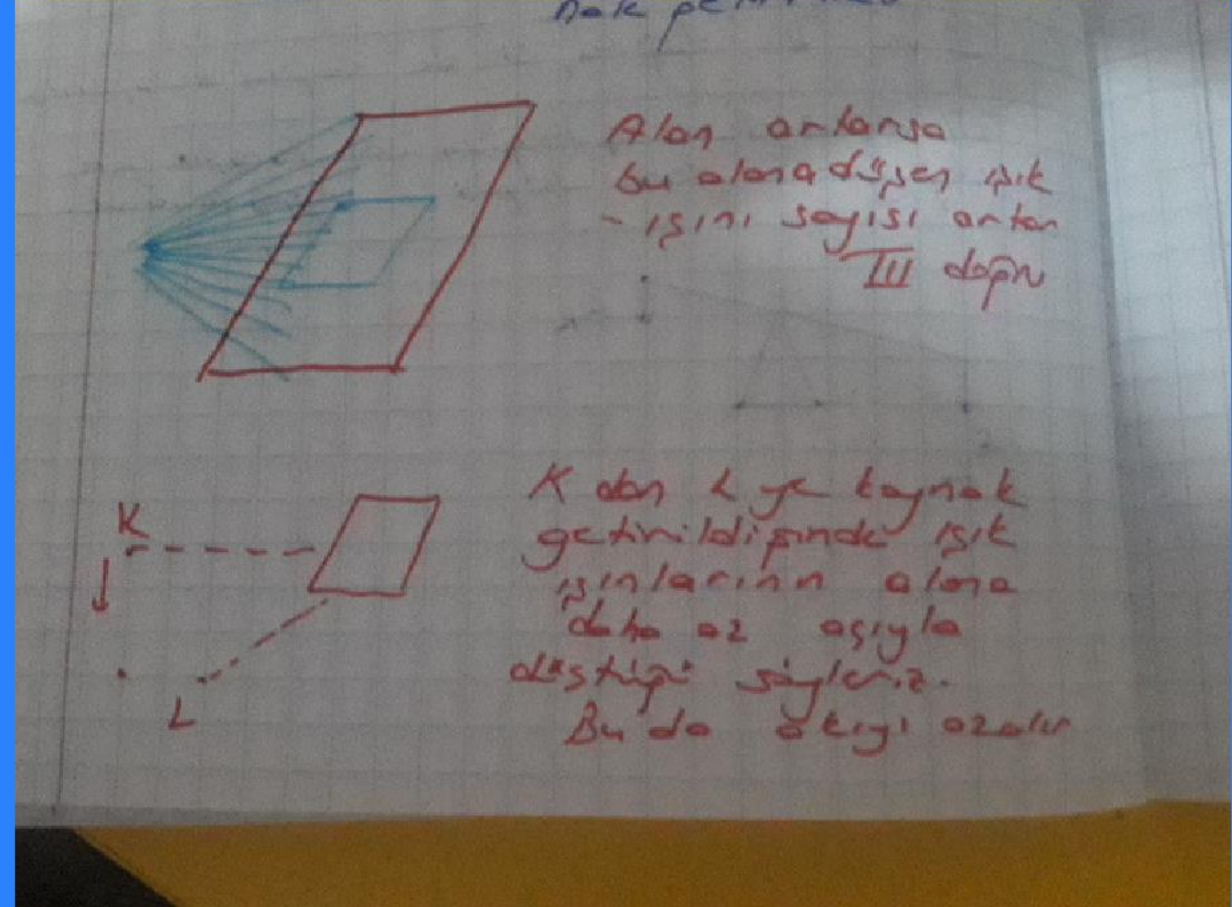 Alan artarsa
bu alana düşen ışık
- ışını sayısı artar
III doğru
K
L
K dan L ye kaynak
getirildiğinde ışık
ışınlarının alana
daha az açıyla
düştüğü söyleriz.
Bu da akıyı azalır